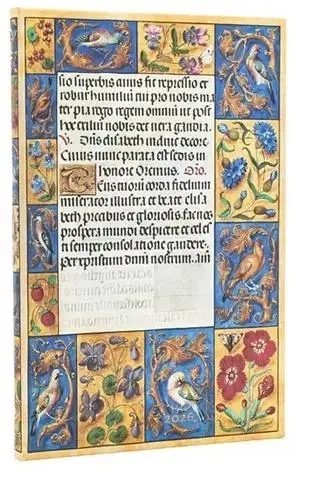 sio superbis annis fit repressio et
robur humiliu cui pro nobis ma
ter pia rego regem omniu ut post
hoc exiliu nobis det vera gaudia.
V. Dns elisabeth induit decore
Cuius nunc parata est sedis in
Thonore Oremus. Oro.
Tuis tuorum corda fidelium
miserator illustra et beate elisa
beth precabus et gloriosis. fac nos
prospera mundi despicere et celes
ti semper consolatione gaudere.
Per xpristum dnm nostrum. am
2026